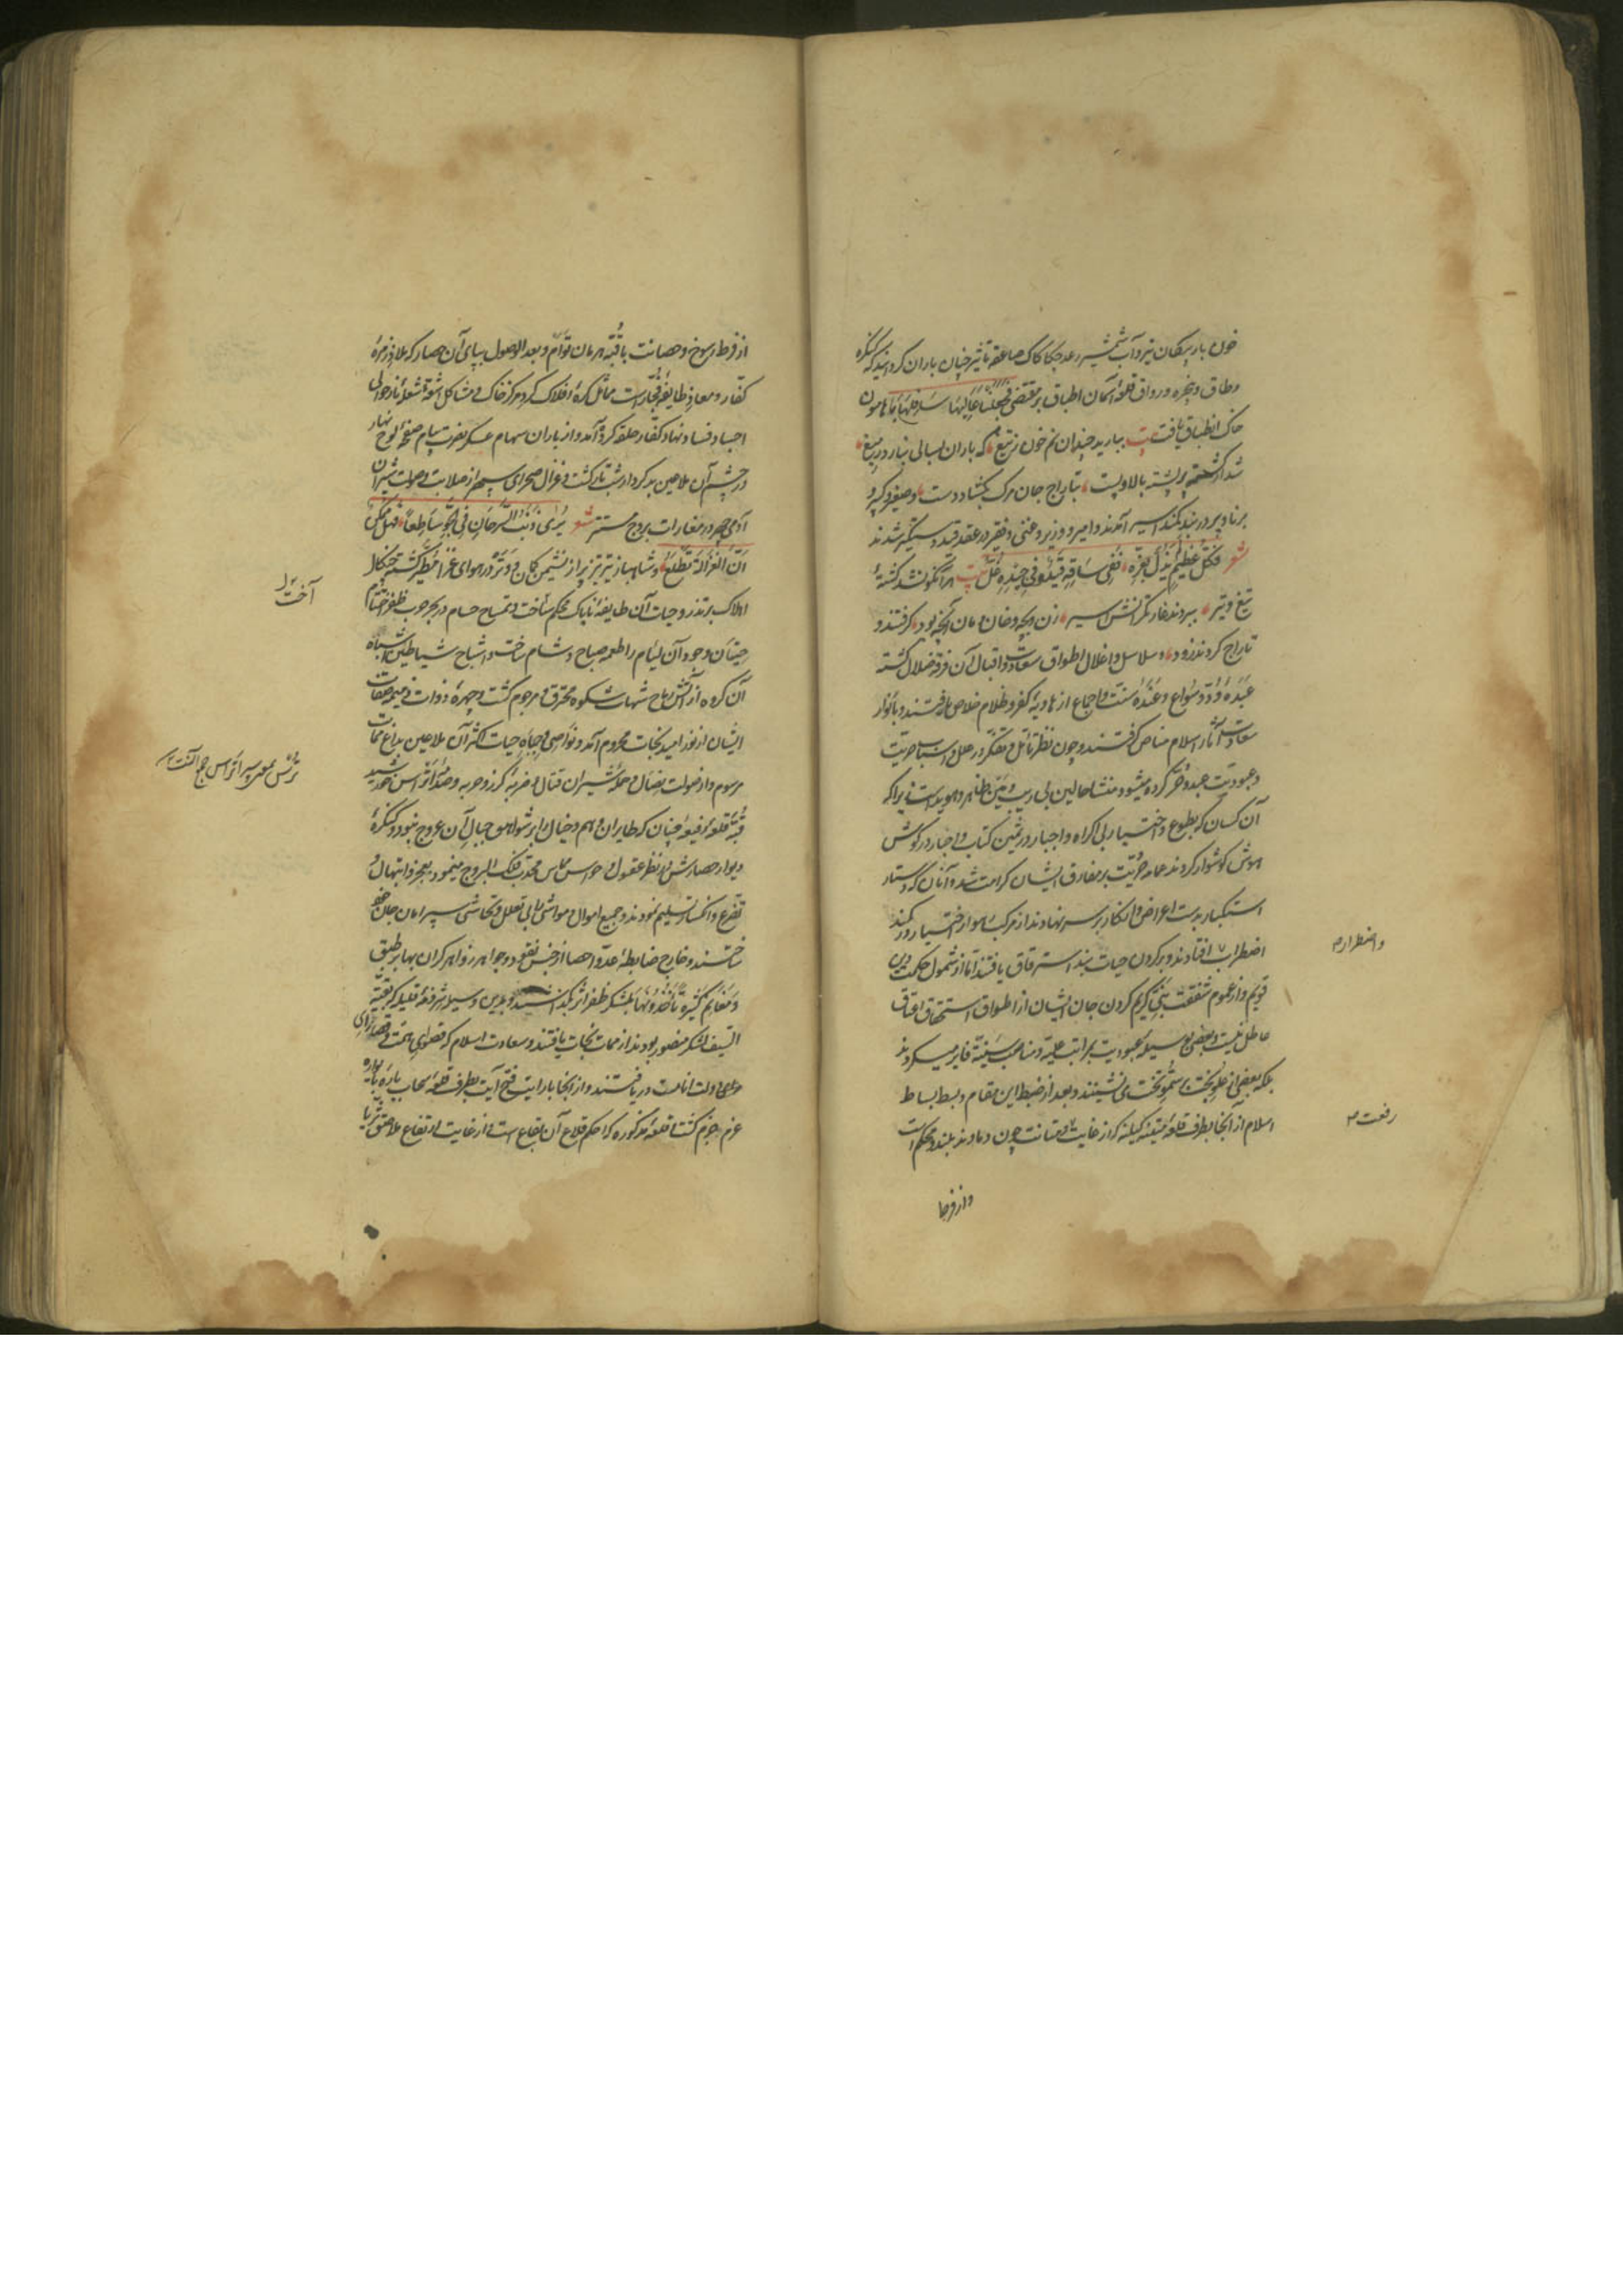 خون بار پیکان تیر و آب شمشیر رعد چکاکاک صاعقه تأثیر چنان باران کردانید که کنکره
وطاق و پنجره و رواق قلعهٔ آسمان اطباق بر مقتضی فجعلنا عالیها سافلها با هامون
خاک انطباق یافت بیت ببارید چندان نم خون ز تیغ که باران بسالی نبارد ز میغ
شد از کشته پر پشته بالا و پست بتاراج جان مرک بکشاد دست وصغیر و کبیر و
برنا و پیر در بند کمند اسیر آمدند و امیر و وزیر و غنی و فقیر در عقد قید دستکیر شدند
شعر فکل عظیم یذل بعزه ففی ساقه قید و فی جیده غل بیت هر آنکو نشد کشتهٔ
تیغ و تیر ببردند غارتکرانش اسیر زن و بچه و خان و مان آنچه بود کرفتند و
تاراج کردند زود و سلاسل و اغلال اطواق سعادت و اقبال آن فرقهٔ ضلال کشته
عبدهٔ ود و سواع و عندهٔ سنت و اجماع از هاویهٔ کفر و ظلام خلاص یافتند و بانوار
سعادت آثار اسلام مناص کرفتند و چون نظر تأمل و تفکر در علل و اسباب حریت
و عبودیت عبد و حر کرده میشود منشأ حالین بی ریب و مین ظاهر و هویداست زیرا که
آن کسان که بطوع و اختیار بی اکراه و اجبار در ثمین کتاب و اخبار در کوش
هوش کوشوار کردند عمامهٔ حریت بر مفارق ایشان کرامت شد و آنان که دستار
استکبار بدست اعراض و انکار بر سر نهادند از مرکب هموار اختیار در کمند
اضطراب افتادند و بر کردن حیات بند استرقاق یافتند اما از شمول حکمت دین
قویم و از عموم شفقت نبی کریم کردن جان ایشان از اطواق استحقاق اعتاق
عاطل نیست و بعضی بوسیلهٔ عبودیت بمراتب علیه و مناصب سنیه فایز میکردند
بلکه بعضی از علو بخت بسمو تخت می نشینند و بعد از ضبط این مقام و بسط بساط
اسلام از آنجا بطرف قلعهٔ کیلنه که از غایت متانت چون دماوند بلند و محکم است
و اضطرار م
رفعت م
و از فرط
از فرط رسوخ و حصانت با قبهٔ هرمان توأم و بعد الوصول بپای آن حصار که ملاذ زمرهٔ
کفار و معاذ طایفهٔ فجار است مماثل کرهٔ افلاک کرد مرکز خاک و مشاکل اشعهٔ شعلهٔ نار حوالی
اجساد فساد نهاد کفار حلقه کرده آمد و از باران سهام عسکر نصرت پیام صفحهٔ لوح نهار
در چشم آن ملاعین بدکردار شب تار کشت و غزال صحرای سپهر از صلابت و صولت شیران
آدمی چهر در مغارات بروج مستتر شعر یری ذنب السرحان فی الجو ساطعا فهل ممکن
ان الغزالة تطلع و شاهباز تیز پر تیر از نشیمن کمان و وتر در هوای غزا مطیر کشته چنکال
هلاک بر تذرو حیات آن طایفهٔ ناپاک محکم ساخت و تمساح حسام در بحر حرب ظفر اختتام
حیتان وجود آن لئام را طعمهٔ صباح و شام ساخت و اشباح شیاطین اشباه
آن کروه از آتش رماح شهاب شکوه محترق و مرجوم کشت و چهرهٔ ذوات ذمیمه صفات
ایشان از نور امید نجات محروم آمد و نواصی و جباه حیات اکثر آن ملاعین بداغ ممات
مرسوم و از صولت نصال و حملهٔ شیران قتال و ضربهٔ کرز و حربه و صدمهٔ اتراس خورشید
قبه قلعهٔ رفیعه چنان که طایران وهم و خیال را بر شواهق جبال آن عروج نبود و کنکرهٔ
دیوار حصارش در نظر عقول و حواس مماس محدب فلک البروج مینمود بعجز و ابتهال و
تضرع و انکسار تسلیم نمودند و جمیع اموال و مواشی را بی تعلل و تحاشی سپر امان جان خود
ساختند و خارج ضابطهٔ عد و احصا از جنس نقود و جواهر زواهر کران بها بر طبق
و مغانم کثیرة تأخذونها بلشکر ظفر اثر بکذاشتند و بدین وسیله شرذمهٔ قلیله که بقیة
السیف لشکر منصور بودند از ممات نجات یافتند و سعادت اسلام که قصوای همت و قصارای
دولت انامست دریافتند و از آنجا با رایت فتح آیت بطرف قلعهٔ سحاب یارهٔ
عزم جزم کشت قلعهٔ مذکوره که احکم قلاع آن بقاع است و از غایت ارتفاع ملاصق ثریا
آخت ل
ترس بمعنی سپر اتراس جمع النت